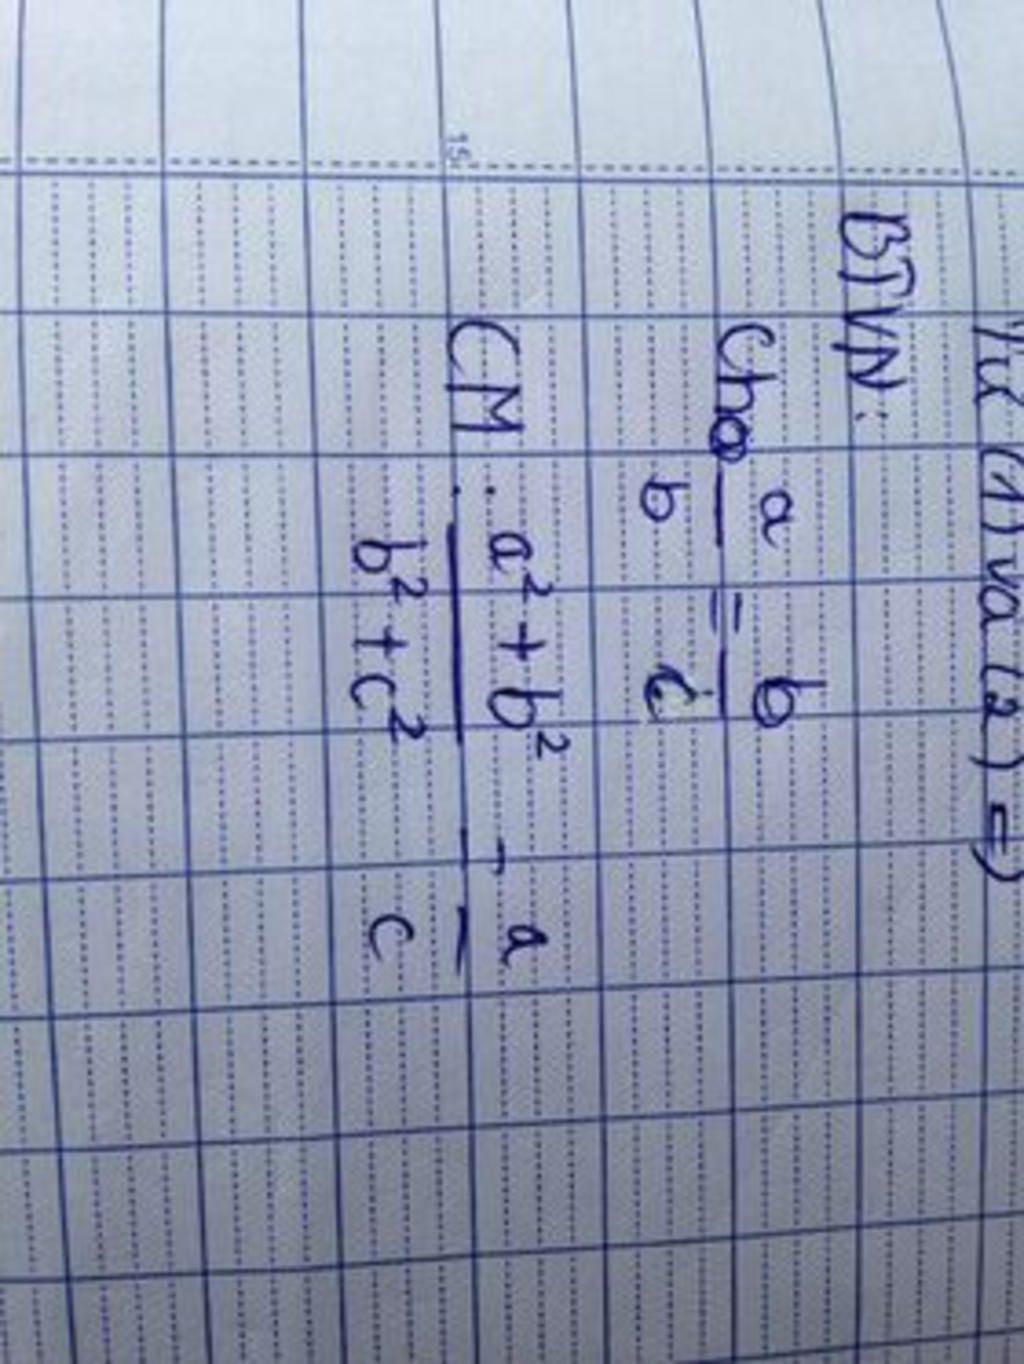 Từ (1) và (2) =>
BTVN:
Cho a/b = b/c
CM: a²+b²/b²+c² = a/c
15